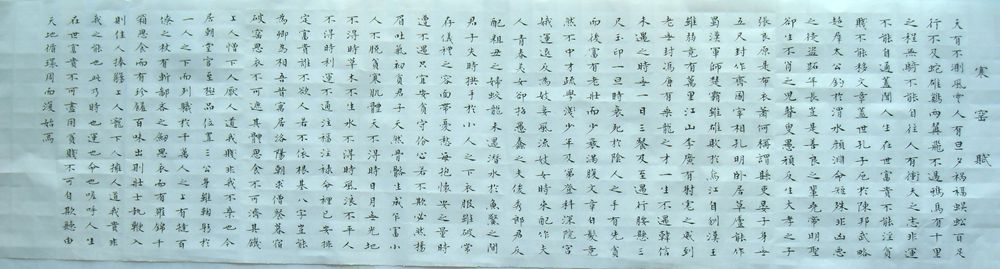 寒窑賦
天有不測風雲人有旦夕禍福蜈蚣百足
行不及蛇雄鷄兩翼飛不過鴉馬有千里
之程無騎不能自往人有衝天之志非運
不能自通蓋聞人生在世富貴不能淫貧
賤不能移文章蓋世孔子厄於陳邦武略
超群太公釣於渭水顔淵命短殊非凶惡
之徒盗跖年長豈是善良之輩堯帝明聖
卻生不肖之兒瞽叟愚頑反生大孝之子
張良原是布衣蕭何稱謂縣吏晏子身無
五尺封作齊國宰相孔明卧居草廬能作
蜀漢軍師楚霸雖雄敗於烏江自刎漢王
雖弱竟有萬里江山李廣有射虎之威到
老無封馮唐有乘龍之才一生不遇韓信
未遇之時無一日三餐及至遇行腰懸三
尺玉印一旦時衰死於陰人之手有先貧
而後富有老壯而少衰滿腹文章白髮竟
然不中才疏學淺少年及第登科深院宮
娥運退反為妓妾風流妓女時來配作夫
人青春美女卻招愚蠢之夫俊秀郎君反
配粗丑之婦蛟龍未遇潛水於魚鱉之間
君子失時拱手於小人之下衣服雖破常
存儀禮之容面帶憂愁每抱懷安之量時
遭不遇只宜安貧守份心若不欺必然揚
眉吐氣初貧君子天然骨骼生成乍富小
人不脱貧寒肌體天不得時日月無光地
不得時草木不生水不得時風浪不平人
不得時利運不通注福注禄命裡已安排
定富貴誰不欲人若不依根基八字豈能
為卿為相吾昔寓居洛陽朝求僧餐暮宿
破窑思衣不可遮其體思食不可濟其饑
上人憎下人厭人道我賤非我不棄也今
居朝堂官至極品位置三公身雖鞠躬於
一人之下而列職於千萬人之上有撻百
僚之杖有斬鄙吝之劍思衣而有羅錦千
箱思食而有珍饈百味出則壯士執鞭入
則佳人捧觴上人寵下人擁人道我貴非
我之能也此乃時也運也命也嗟呼人生
在世富貴不可盡用貧賤不可自欺聽由
天地循環周而復始焉